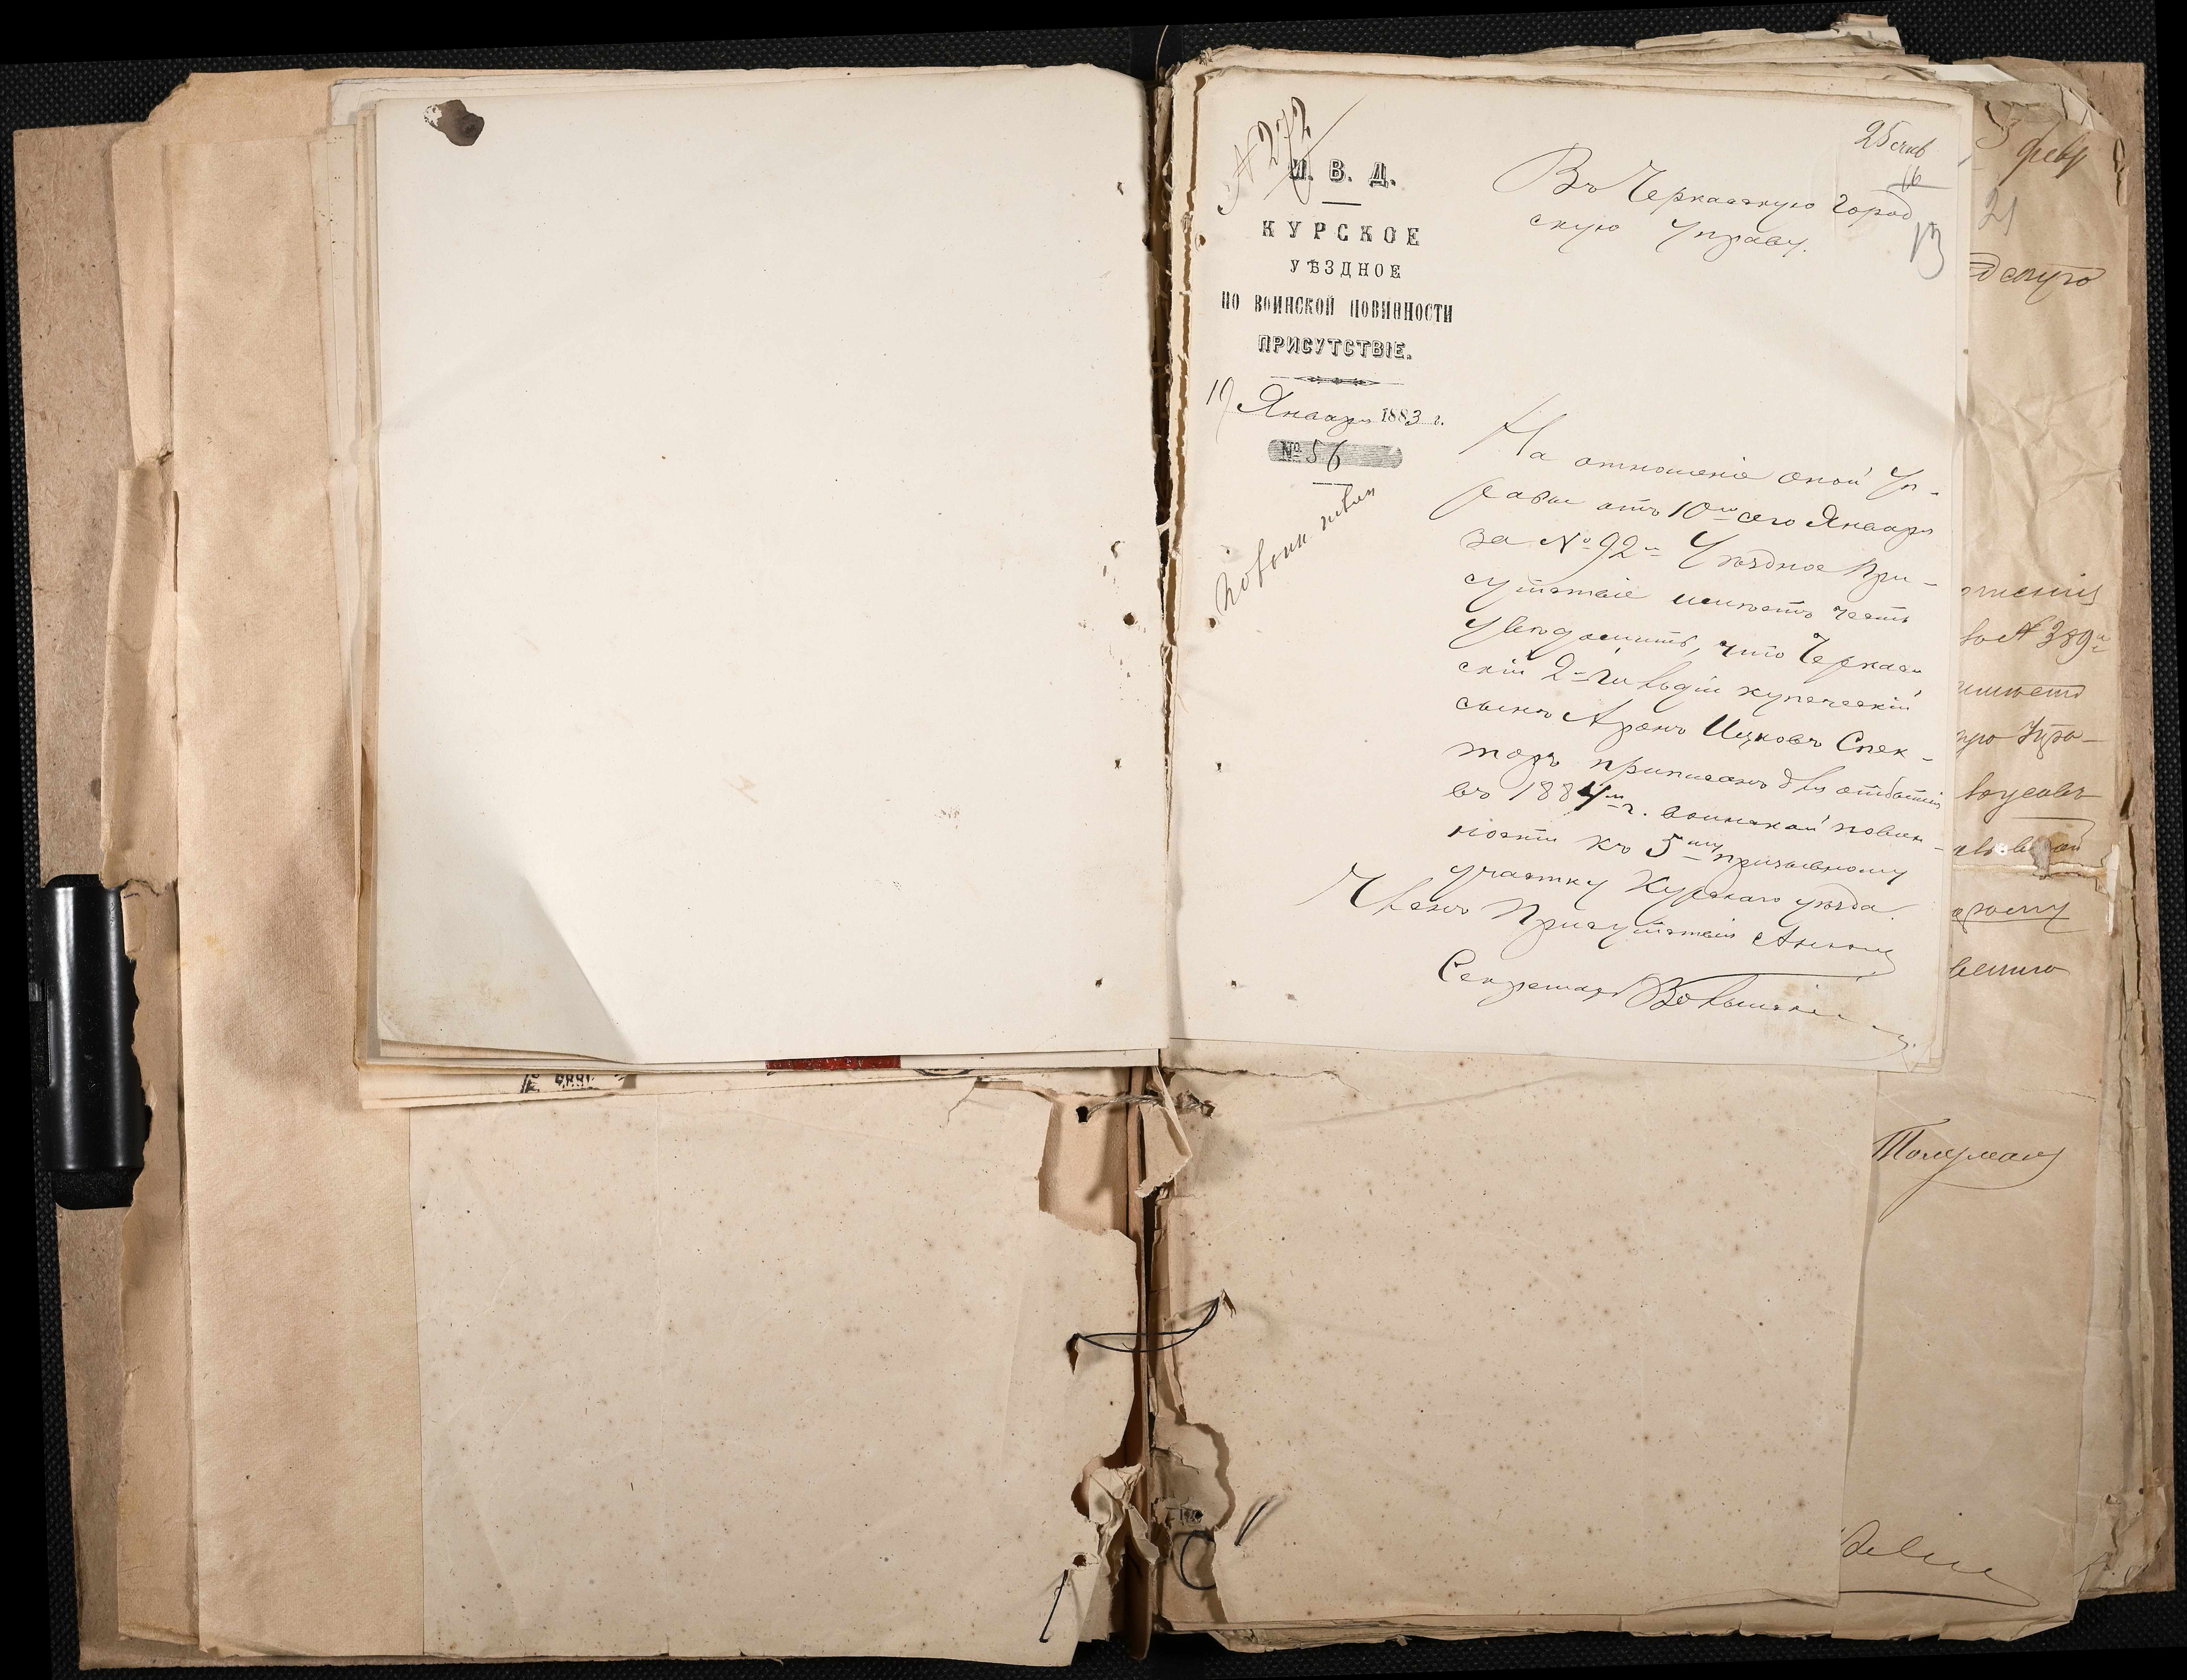 № 272
25 янв
16
13
М. В. Д.
КУРСКОЕ
УѢЗДНОЕ
ПО ВОИНСКОЙ ПОВИННОСТИ
ПРИСУТСТВІЕ.
19 Января 1883 г.
№ 56
Въ Черкасскую город
скую Управу.
На отношеніе оной Уп-
равы отъ 10го сего Января
за № 92м Уѣздное При-
сутствіе имѣетъ честь
увѣдомить, что Черкас
скій 2-й гильдіи купеческій
сынъ Аронъ Ицковъ Спек-
торъ приписанъ для отбытія
въ 1884м г. воинской повин-
ности къ 5му призывному
участку Курскаго уѣзда.
Членъ Присутствія
Секретарь
3 февр
21
дскую
№ 389
имѣетъ